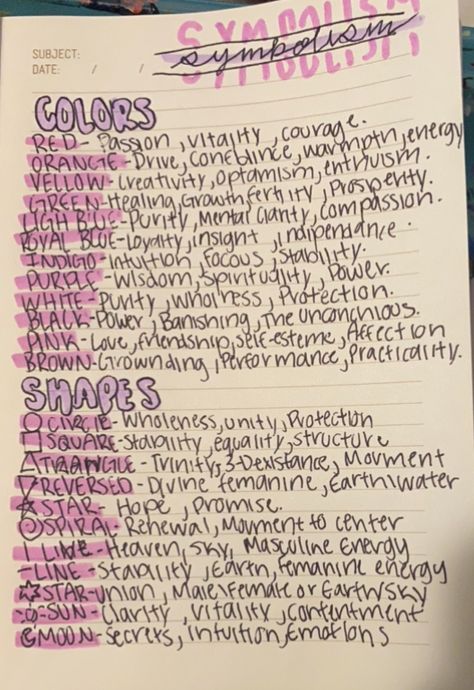 SYMBOLISM
symbolism
SYMBOLISM
SUBJECT:
DATE: / /
COLORS
RED- Passion, vitality, courage.
ORANGE- Drive, Confidince, warmpth, energy
YELLOW- Creativity, Optamism, enthuism.
GREEN- Healing, Growth, fertility, Prosperity.
LIGH BLUE- Purity, Mental Clarity, Compassion.
ROYAL BLUE- Loyalty, insight, indipendance.
INDIGO- Intuition, Focous, Stability.
PURPLE- Wisdom, Spirituality, Power.
WHITE- Purity, wholness, Protection.
BLACK- Power, Banishing, The Unconchious.
PINK- Love, friendship, self-esteme, Affection
BROWN- Grownding, Performance, Practicality.
SHAPES
CIRCLE- Wholeness, unity, Protection
SQUARE- Stability, equality, structure
TRANGLE- Trinity, 3-Dexistance, Movment
REVERSED- Divine femanine, Earth\water
STAR- Hope, Promise.
SPIRAL- Renewal, Movment to center
LINE- Heaven, Sky, Masculine Energy
LINE- Stability, Earth, femanine energy
STAR- Union, Male\female or Earth/Sky
SUN- Clarity, Vitality, contentment
MOON- Secrets, Intuition, Emotions